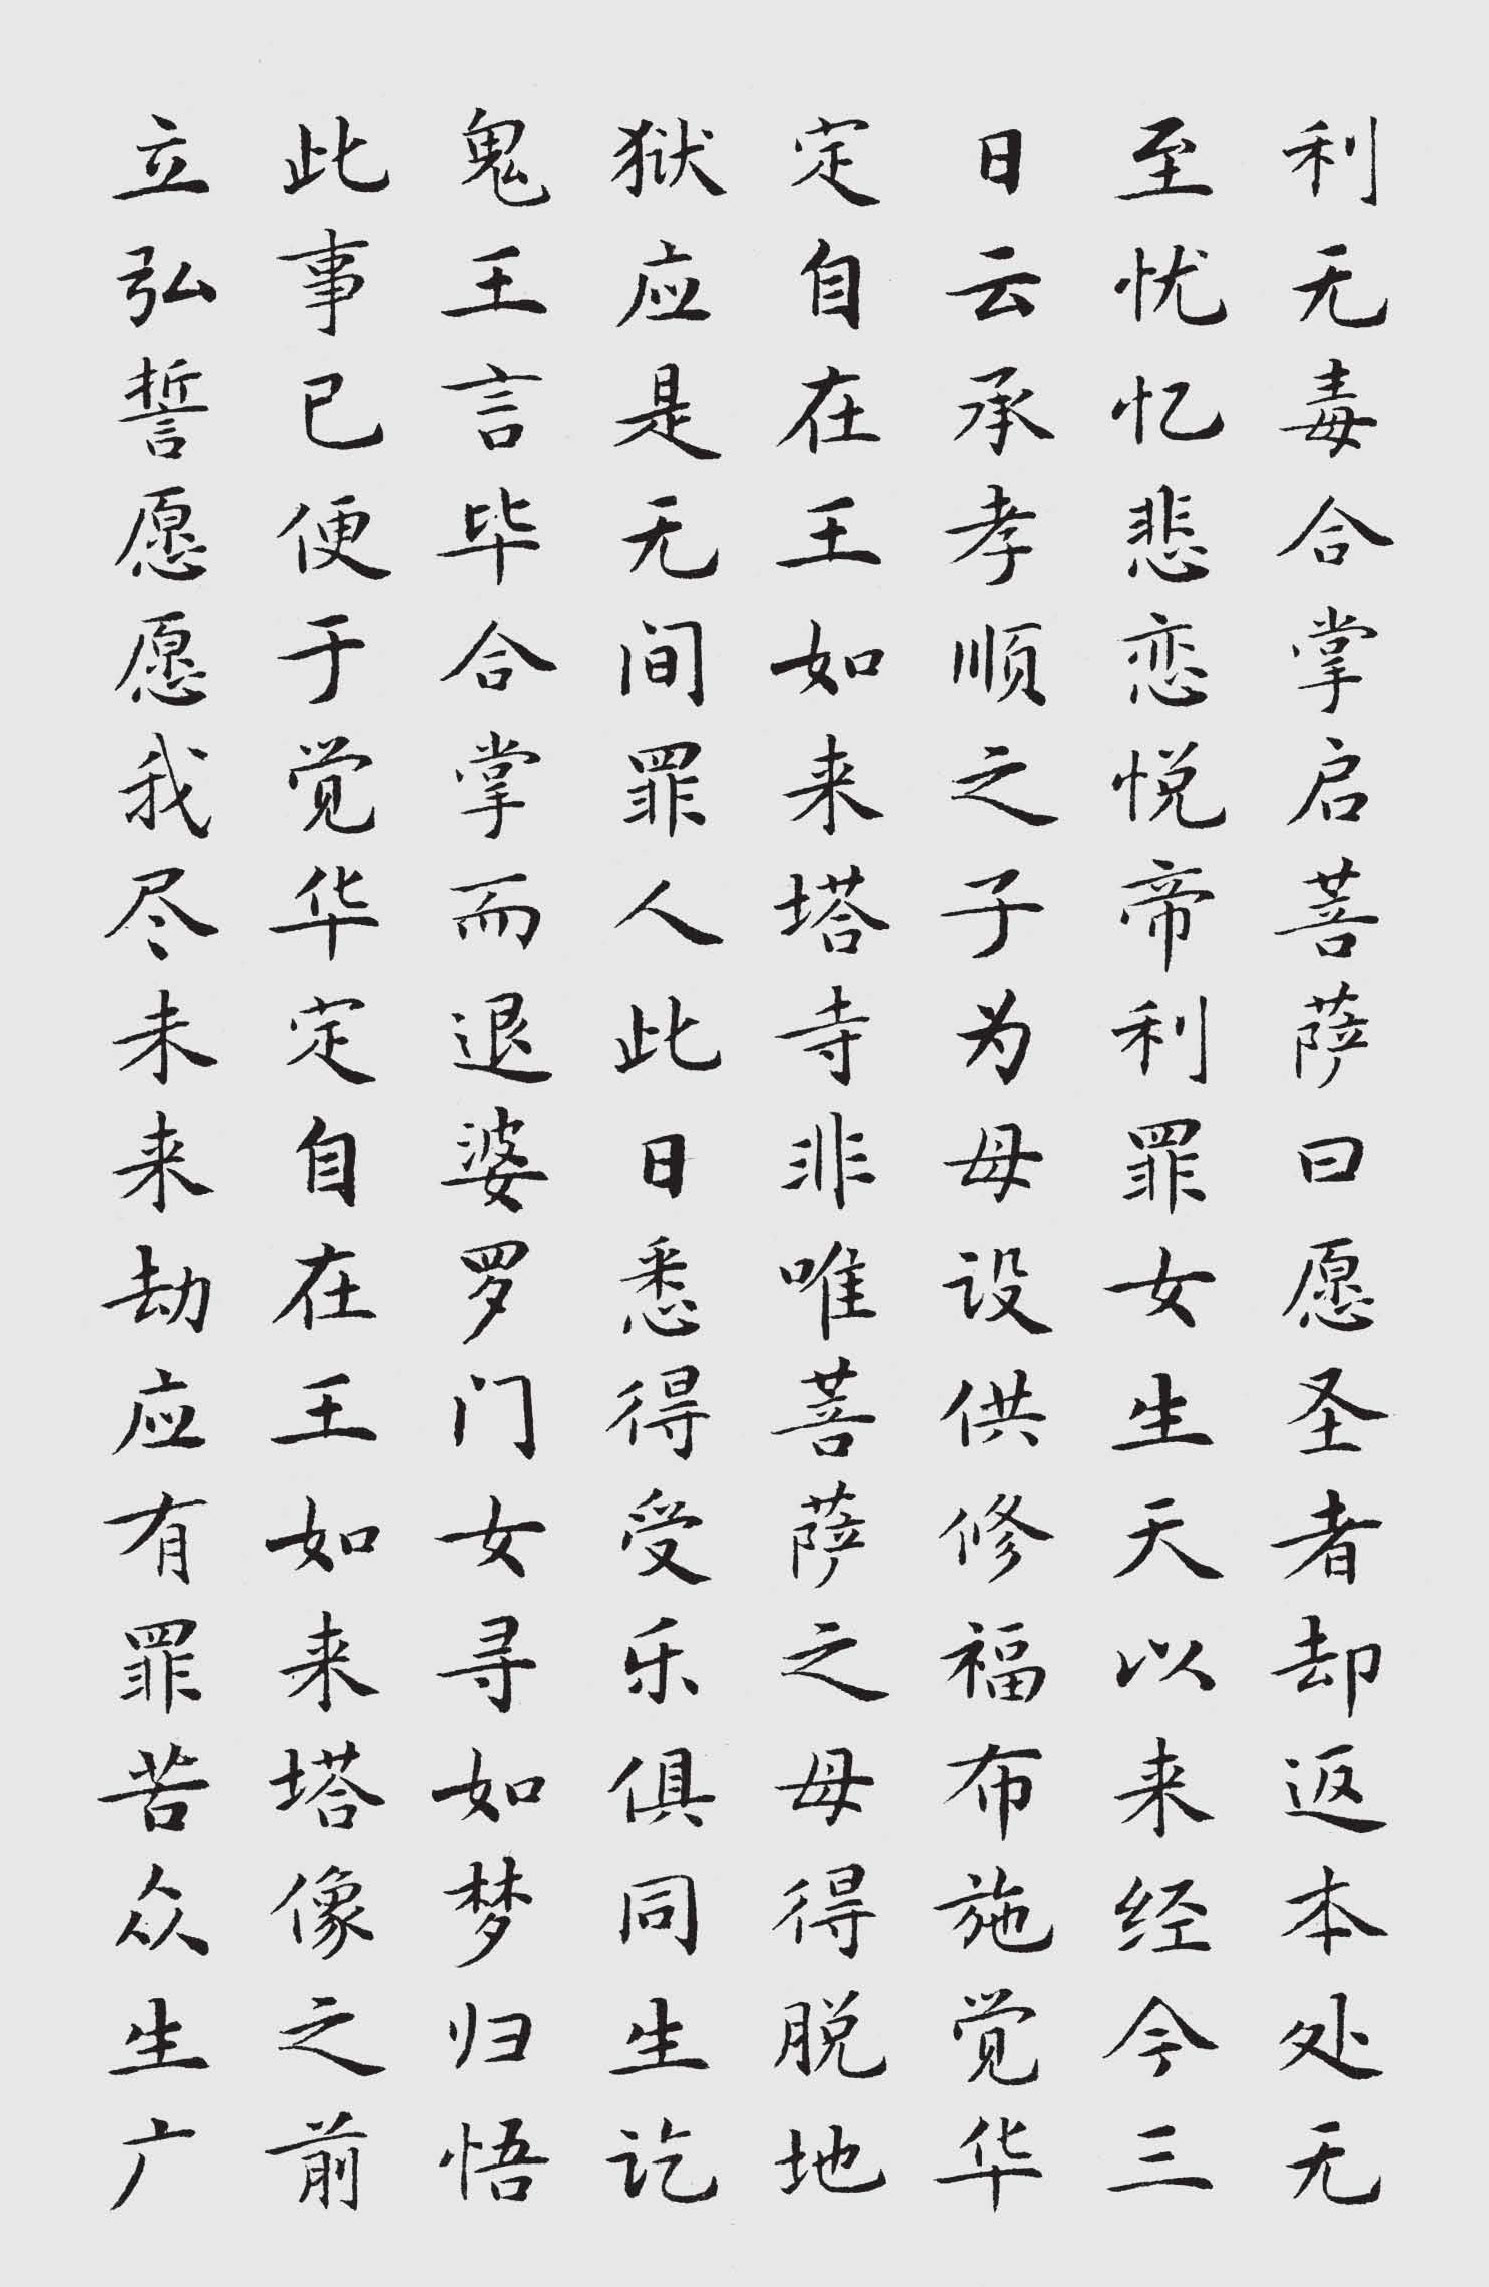 利无毒合掌启菩萨曰愿圣者却返本处无
至忧忆悲恋悦帝利罪女生天以来经今三
日云承孝顺之子为母设供修福布施觉华
定自在王如来塔寺非唯菩萨之母得脱地
狱应是无间罪人此日悉得受乐俱同生讫
鬼王言毕合掌而退婆罗门女寻如梦归悟
此事已便于觉华定自在王如来塔像之前
立弘誓愿愿我尽未来劫应有罪苦众生广